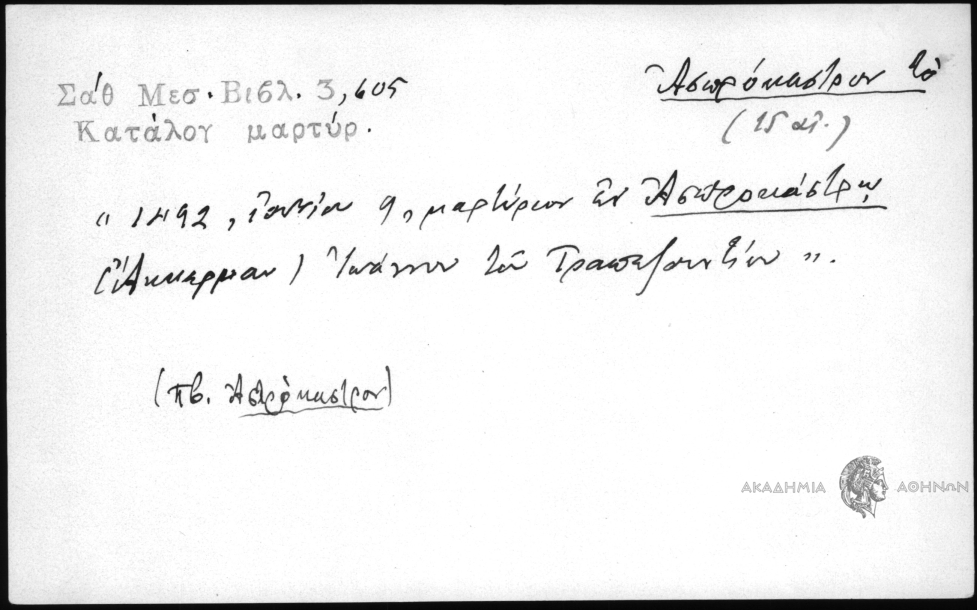 Σάθ Μεσ. Βιβλ. 3,605
Κατάλογ μαρτύρ.
Ἀσπρόκαστρον τὸ
(15 αἰ.)
"1492, ἰουνίου 9, μαρτύριον ἐν Ἀσπροκάστρῳ
(Ἀκκερμαν) Ἰωάννου τοῦ Τραπεζουντίου".
(πβ. Ἀσπρόκαστρον)
ΑΚΑΔΗΜΙΑ ΑΘΗΝΩΝ